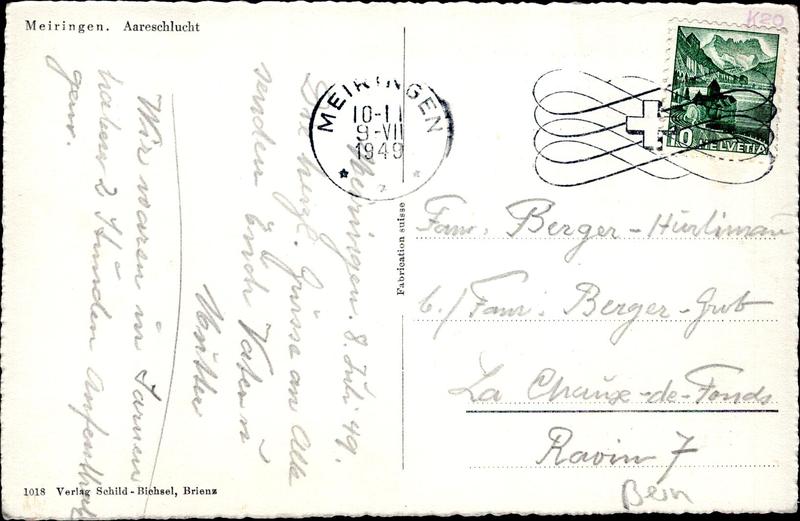 Meiringen. Aareschlucht
K20
MEIRINGEN
10-11
9-VII
1949
10 HELVETIA
Meiringen. 8. Juli 49.
Die herzl. Grüsse an Alle
senden Euch Vater u
Mutter
Wir waren in Sarnen
haben 2 Stunden Aufenthalt
gehabt.
Fabrication suisse
Fam. Berger-Hürliman
b./ Fam. Berger-Grob
La Chaux-de-Fonds
Ravin 7
Bern
1018 Verlag Schild-Bichsel, Brienz